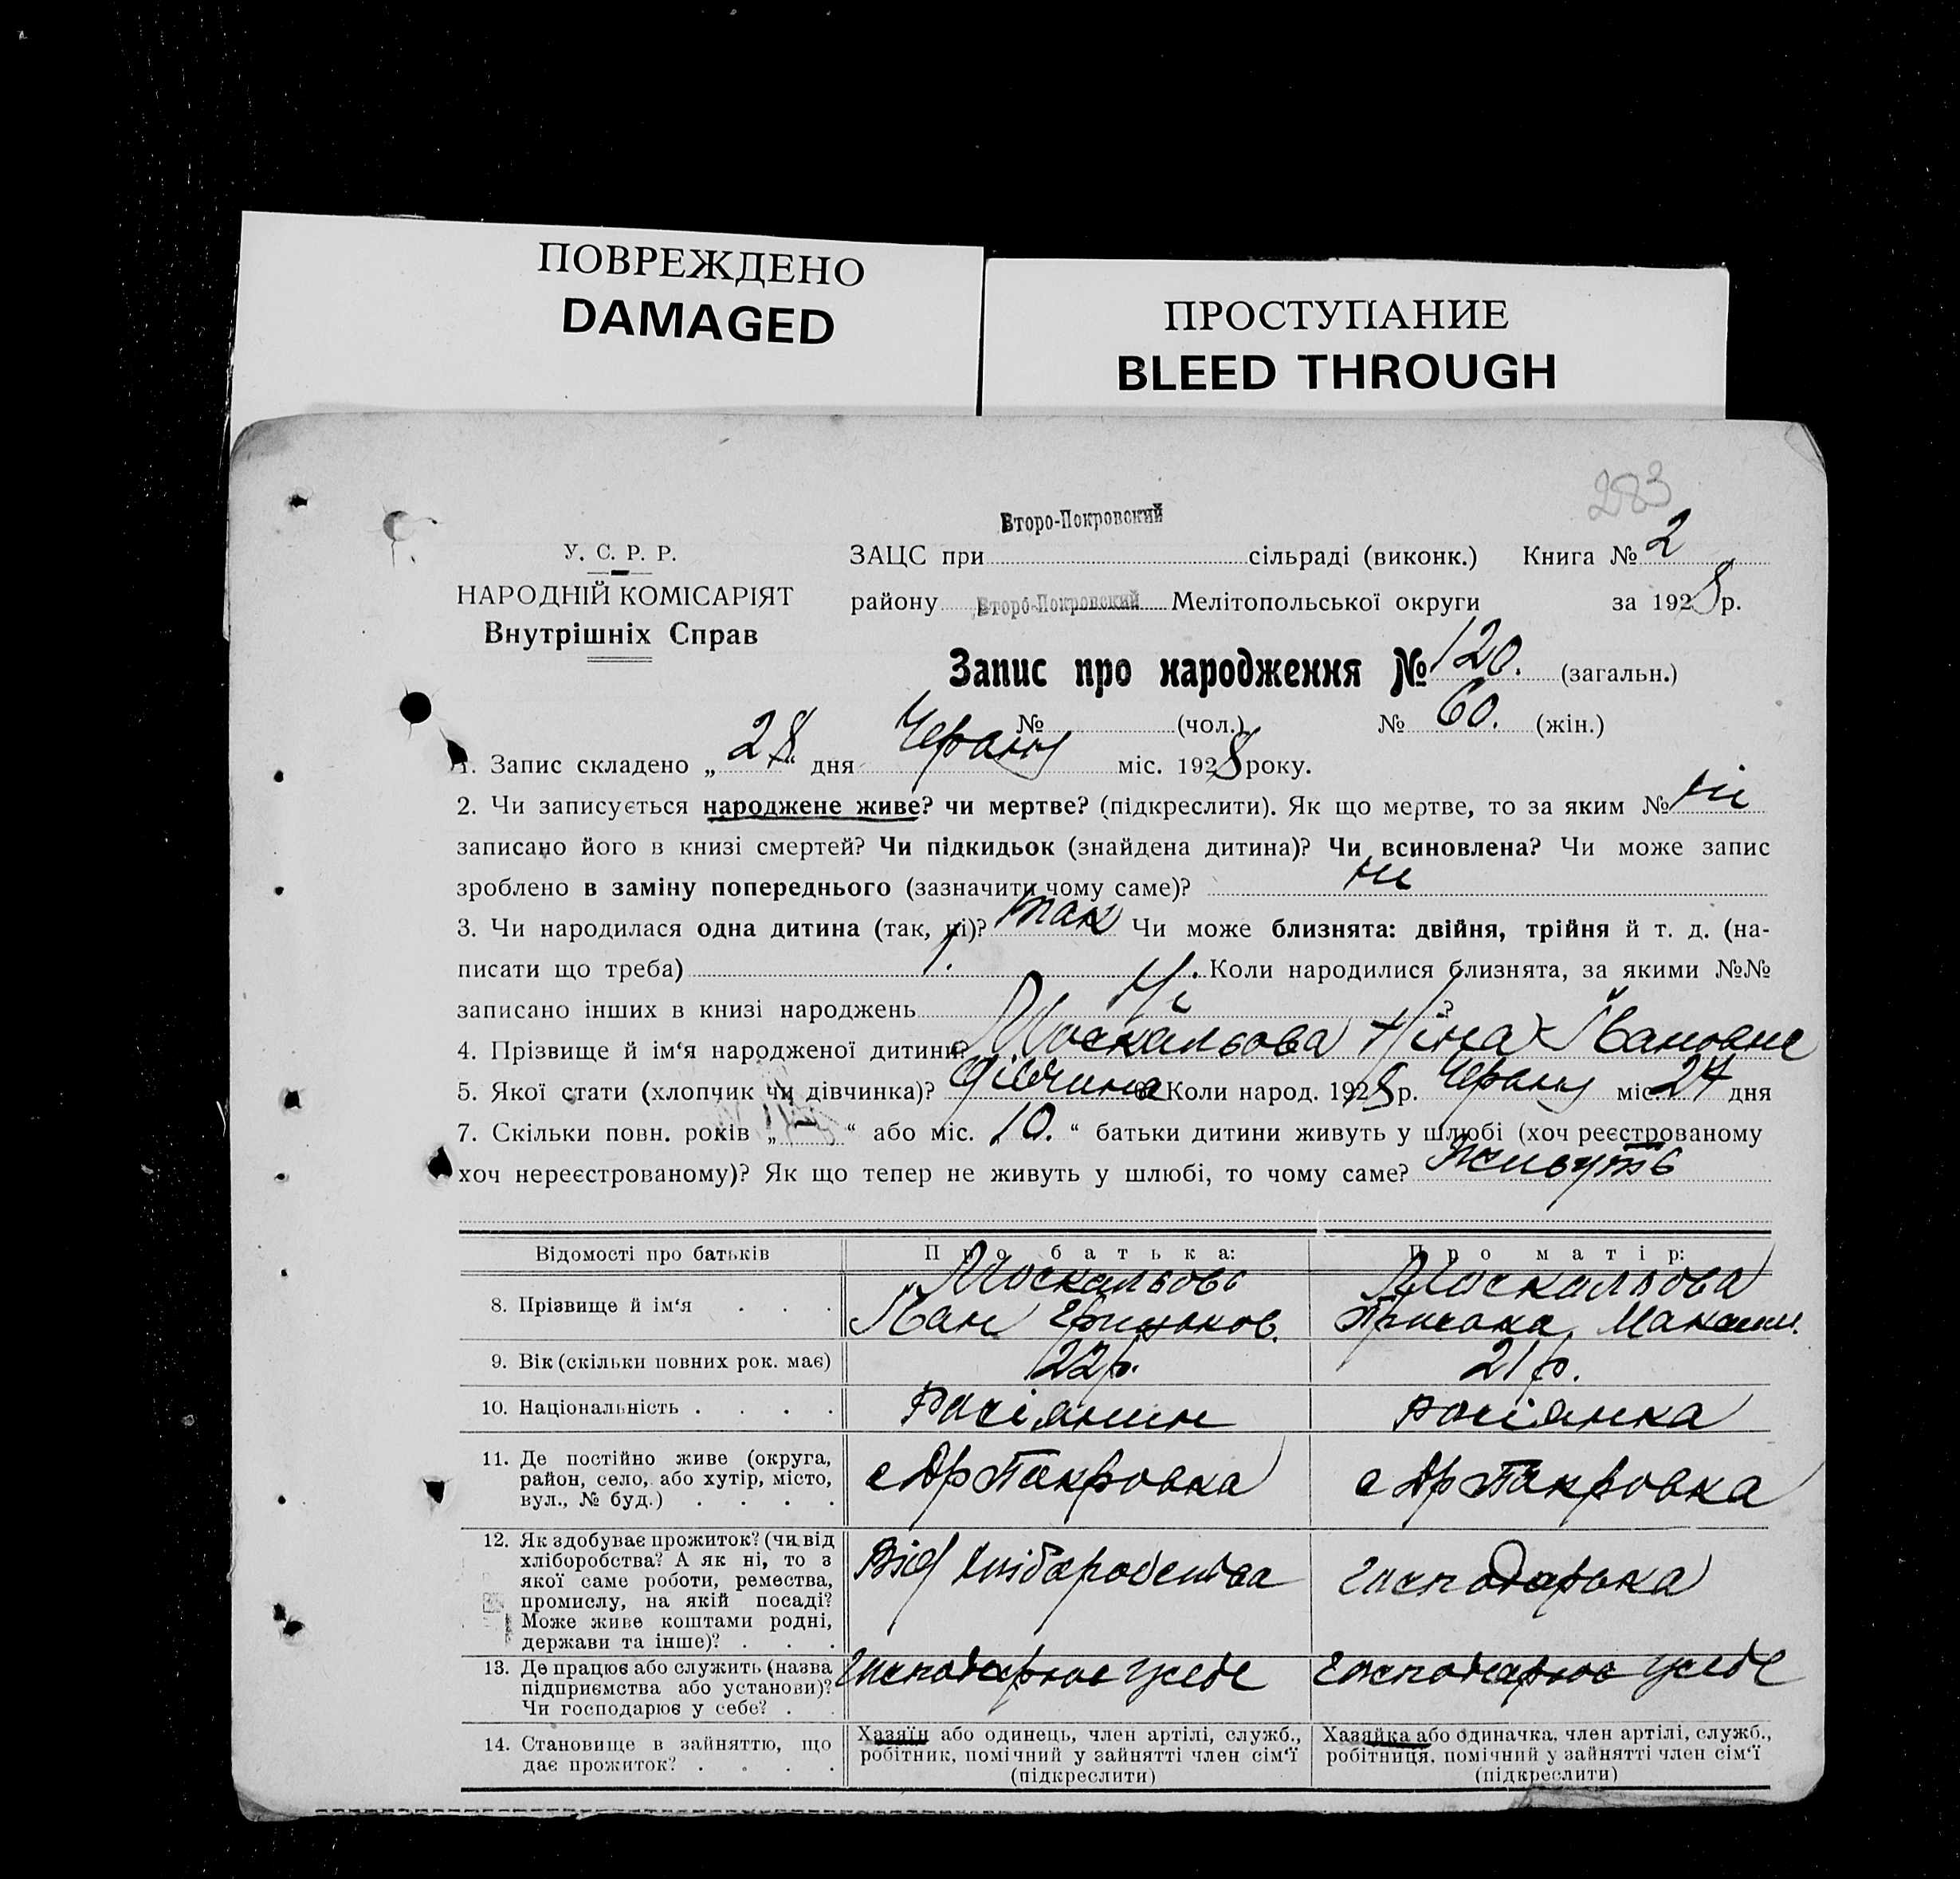 ПОВРЕЖДЕНО
DAMAGED
ПРОСТУПАНИЕ
BLEED THROUGH
283
Второ-Покровский
У. С. Р. Р.
ЗАЦС при сільраді (виконк.) Книга № 2
НАРОДНІЙ КОМІСАРІЯТ
району Второ-Покровский Мелітопольської округи за 1928 р.
Внутрішніх Справ
Запис про народження № 120. (загальн.)
№ (чол.) № 60. (жін.)
1. Запис складено „ 28 “ дня Червня міс. 1928 року.
2. Чи записується народжене живе? чи мертве? (підкреслити). Як що мертве, то за яким № ні
записано його в книзі смертей? Чи підкидьок (знайдена дитина)? Чи всиновлена? Чи може запис
зроблено в заміну попереднього (зазначити чому саме)? ні
3. Чи народилася одна дитина (так, ні)? так Чи може близнята: двійня, трійня й т. д. (на-
писати що треба) 1. Коли народилися близнята, за якими №№
записано інших в книзі народжень Ні ?
4. Прізвище й ім‘я народженої дитини? Москальова Ніна Івановне
5. Якої стати (хлопчик чи дівчинка)? дівчина 6. Коли народ. 1928 р. Червня міс. 27 дня
7. Скільки повн. років „ - “ або міс. „ 10. “ батьки дитини живуть у шлюбі (хоч реєстрованому
хоч нереєстрованому)? Як що тепер не живуть у шлюбі, то чому саме? Живуть
Відомості про батьків Про батька: Про матір:
Москальова
8. Прізвище й ім‘я . . .
9. Вік (скільки повних рок. має) 22 р. 21 р.
10. Національність . . . . Расіянин росіянка
11. Де постійно живе (округа,
район, село, або хутір, місто,
вул., № буд.) . . . .
с Др Пакровка с Др Пакровка
12. Як здобуває прожиток? (чи від
хліборобства? А як ні, то з
якої саме роботи, ремества,
промислу, на якій посаді?
Може живе коштами родні,
держави та інше)? . . .
Від хліборобства господарька
13. Де працює або служить (назва
підприємства або установи)?
Чи господарює у себе? . .
господарює усебе господарює усебе
14. Становище в зайняттю, що
дає прожиток? . . . .
Хазяїн або одинець, член артілі, служб.,
робітник, помічний у зайнятті член сім‘ї
(підкреслити)
Хазяйка або одиначка, член артілі, служб.,
робітниця, помічний у зайнятті член сім‘ї
(підкреслити)